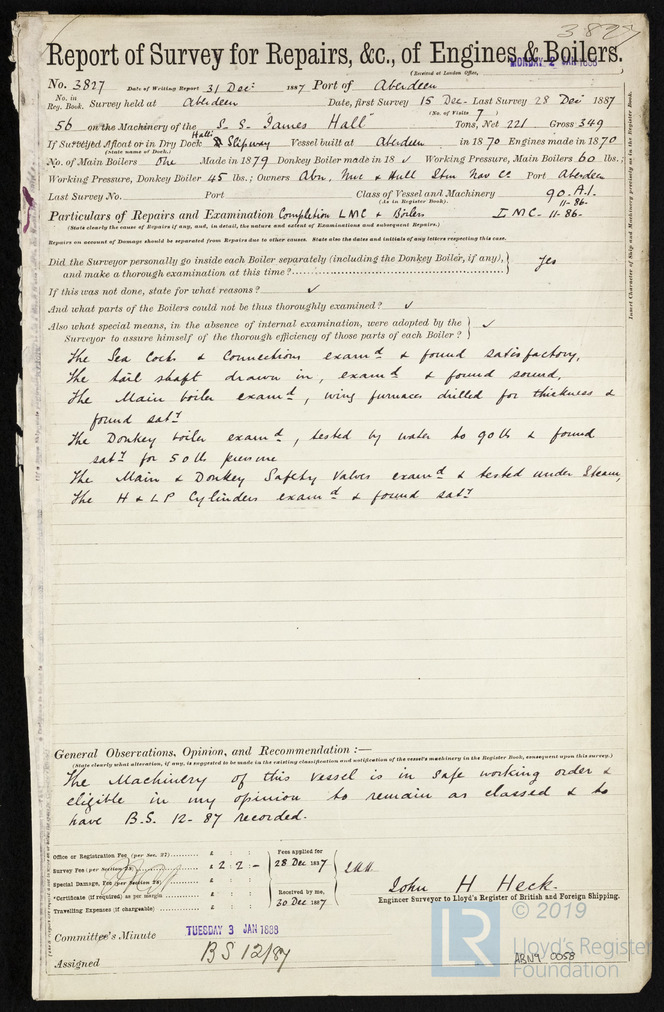 3827
Report of Survey for Repairs, &c., of Engines & Boilers.
(Received at London Office, MONDAY 2 JAN 1888
No. 3827 Date of Writing Report 31 Dec: 1887 Port of Aberdeen
No. in Reg. Book. Survey held at Aberdeen Date, first Survey 15 Dec- Last Survey 28 Dec 1887
(No. of Visits 7)
56 on the Machinery of the S. S. James Hall Tons, Net 221 Gross 349
If Surveyed Afloat or in Dry Dock Halls Slipway Vessel built at Aberdeen in 1870 Engines made in 1870
(State name of Dock.)
No. of Main Boilers One Made in 1879 Donkey Boiler made in 18 ✓ Working Pressure, Main Boilers 60 lbs.;
Working Pressure, Donkey Boiler 45 lbs.; Owners Abn, Nwc & Hull Stm Nav Co Port Aberdeen
Last Survey No. Port Class of Vessel and Machinery 90.A.1.
(As in Register Book). 11-86-
Particulars of Repairs and Examination Completion LMC & Boilers LMC- 11-86-
(State clearly the cause of Repairs if any, and, in detail, the nature and extent of Examinations and subsequent Repairs.)
Repairs on account of Damage should be separated from Repairs due to other causes. State also the dates and initials of any letters respecting this case.
Did the Surveyor personally go inside each Boiler separately (including the Donkey Boiler, if any), and make a thorough examination at this time? Yes
If this was not done, state for what reasons? ✓
And what parts of the Boilers could not be thus thoroughly examined? ✓
Also what special means, in the absence of internal examination, were adopted by the Surveyor to assure himself of the thorough efficiency of those parts of each Boiler? ✓
The Sea Cocks & Connections examd & found satisfactory,
The tail shaft drawn in, examd & found sound,
The Main boiler examd, wing furnaces drilled for thickness &
found saty
The Donkey boiler examd, tested by water to 90 lb & found
saty for 50 lb pressure
The Main & Donkey Safety Valves examd & tested under Steam,
The H & LP Cylinders examd & found saty
Insert Character of Ship and Machinery precisely as in the Register Book.
General Observations, Opinion, and Recommendation:—
(State clearly what alteration, if any, is suggested to be made in the existing classification and notification of the vessel's machinery in the Register Book, consequent upon this survey.)
The Machinery of this vessel is in safe working order &
eligible in my opinion to remain as classed & to
have B.S. 12-87 recorded.
Office or Registration Fee (per Sec. 27) £ : :
Survey Fee (per Section 28) £ 2 : 2 : -
Special Damage Fee (per Section 28) £ : :
*Certificate (if required) as per margin £ : :
Travelling Expenses (if chargeable) £ : :
Fees applied for
28 Dec 1887
Received by me,
30 Dec 1887
John H Heck.
Engineer Surveyor to Lloyd's Register of British and Foreign Shipping.
Committee's Minute TUESDAY 3 JAN 1888
Assigned BS 12/87
ABN9 0058
LR
© 2019
Lloyd's Register
Foundation